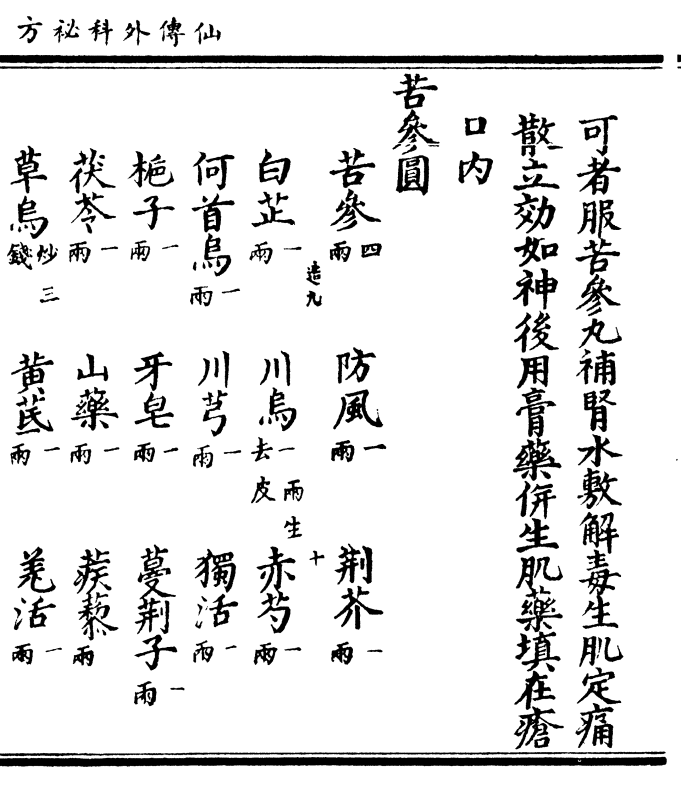 仙傳外科祕方
可者服苦參丸補腎水敷解毒生肌定痛
散立効如神後用膏藥併生肌藥填在瘡
口内
苦參圓
苦參四兩 防風一兩 荆芥一兩
造九 十
白芷一兩 川烏一兩生去皮 赤芍一兩
何首烏一兩 川芎一兩 獨活一兩
栀子一兩 牙皂一兩 蔓荆子一兩
茯苓一兩 山藥一兩 蒺藜一兩
草烏炒三錢 黄芪一兩 羌活一兩